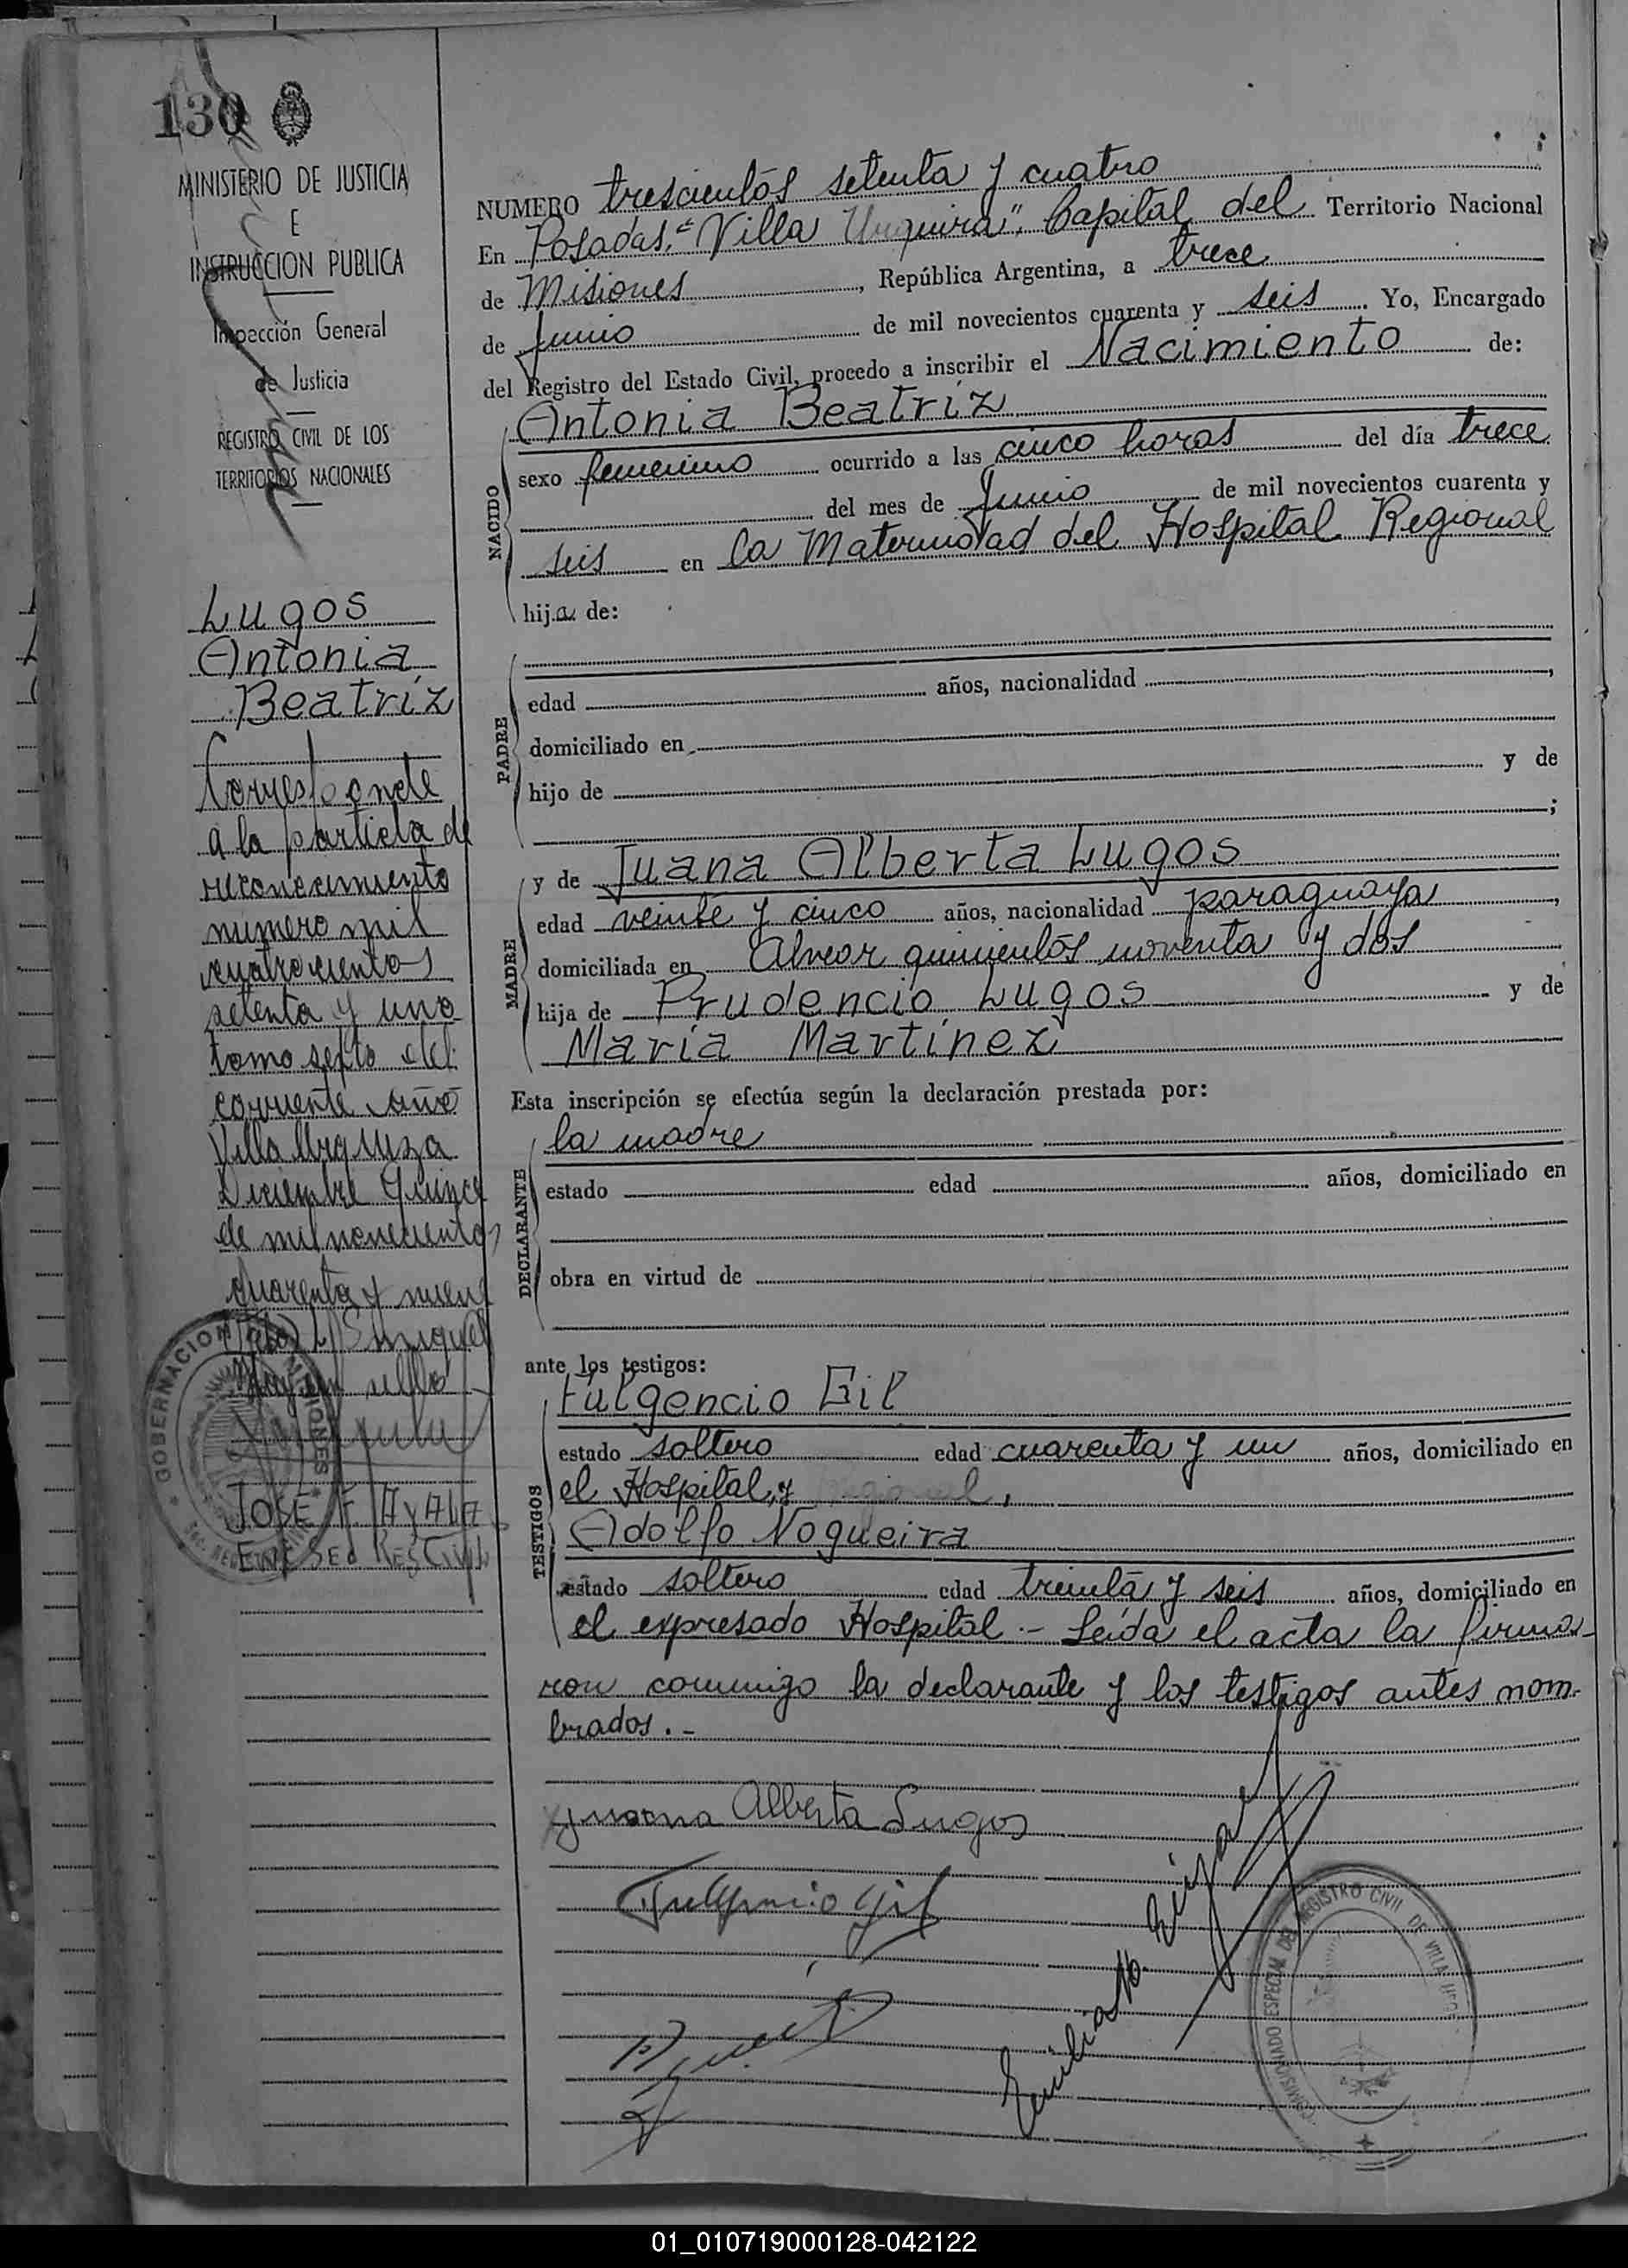 130
MINISTERIO DE JUSTICIA
E
INSTRUCCION PUBLICA
Inspección General
de Justicia
REGISTRO CIVIL DE LOS
TERRITORIOS NACIONALES
Lugos
Antonia
Beatríz
Corresponde
a la partida de
reconocimiento
numero mil
cuatrocientos
setenta y uno
tomo septo del
corriente año
Villa Urquiza
Diciembre Quince
de mil novecientos
cuarenta y nueve
JOSE F. AyALA
ENC SEC REG CIVIL
GOBERNACION MISIONES
NUMERO trescientos setenta y cuatro
En Posadas, "Villa Urquiza", Capital del Territorio Nacional
de Misiones, República Argentina, a trece
de Junio de mil novecientos cuarenta y seis. Yo, Encargado
del Registro del Estado Civil, procedo a inscribir el Nacimiento de:
NACIDO
Antonia Beatríz
sexo femenino ocurrido a las cinco horas del día trece
del mes de Junio de mil novecientos cuarenta y
seis en la Maternidad del Hospital Regional
hija de:
PADRE
edad años, nacionalidad ,
domiciliado en
hijo de y de
;
MADRE
y de Juana Alberta Lugos
edad veinte y cinco años, nacionalidad paraguaya,
domiciliada en Alvear quinientos noventa y dos
hija de Prudencio Lugos y de
María Martínez
Esta inscripción se efectúa según la declaración prestada por:
DECLARANTE
la madre
estado edad años, domiciliado en
obra en virtud de
ante los testigos:
TESTIGOS
Fulgencio Gil
estado soltero edad cuarenta y un años, domiciliado en
el Hospital, y
Adolfo Nogueira
estado soltero edad treinta y seis años, domiciliado en
el expresado Hospital.- Leída el acta la firma-
ron conmigo la declarante y los testigos antes nom-
brados.-
Juana Alberta Lugos
Fulgencio Gil
COMISIONADO ESPECIAL DEL REGISTRO CIVIL DE VILLA
01_010719000128-042122